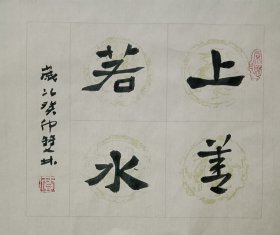 上善
若水
岁次癸卯